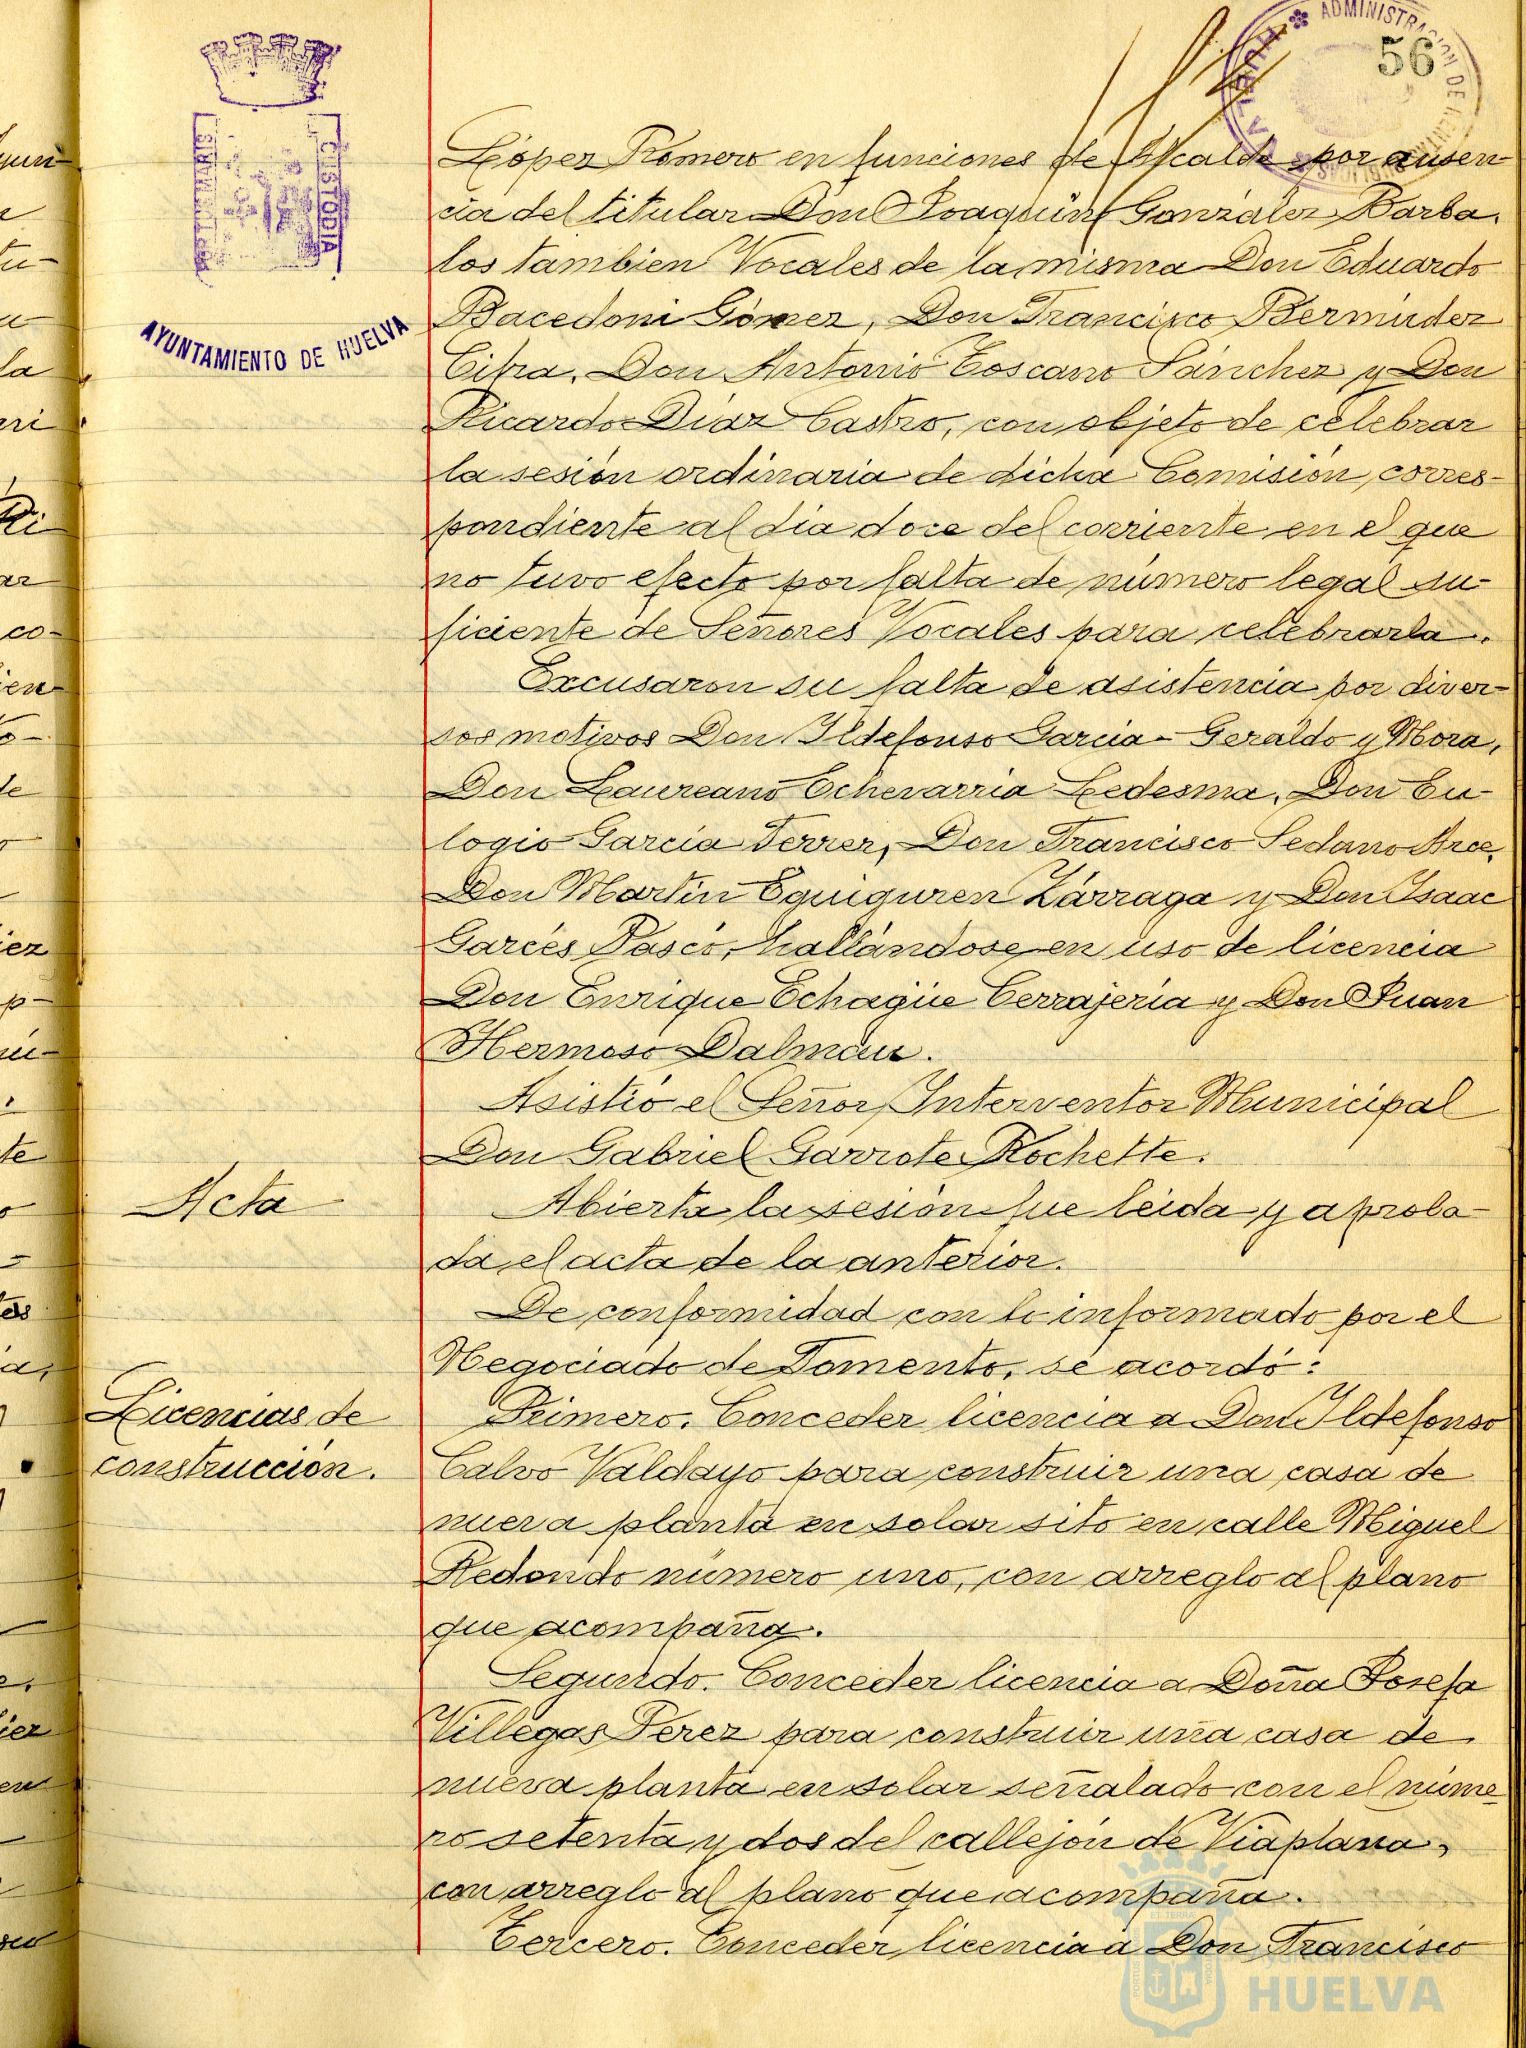 ADMINISTRACION DE RENTAS
56
PORTUS MARIS
CUSTODIA
AYUNTAMIENTO DE HUELVA
López Romero en funciones de Alcalde por ausen-
cia del titular Don Joaquín González Barba,
los tambien Vocales de la misma Don Eduardo
Bacedoni Gómez, Don Francisco Bermúdez
Cifra, Don Antonio Toscano Sánchez y Don
Ricardo Díaz Castro, con objeto de celebrar
la sesión ordinaria de dicha Comisión, corres-
pondiente al día doce del corriente en el que
no tuvo efecto por falta de número legal su-
ficiente de Señores Vocales para celebrarla.
Excusaron su falta de asistencia por diver-
sos motivos Don Ildefonso Garcia-Geraldo y Mora,
Don Laureano Echevarria Ledesma, Don Eu-
logio García Ferrer, Don Francisco Sedano Arce,
Don Martín Eguiguren Zárraga y Don Isaac
Garcés Pasco, hallándose en uso de licencia
Don Enrique Echagüe Cerrajería y Don Juan
Hermoso Dalmau.
Asistió el Señor Interventor Municipal
Don Gabriel Garrote Rochette.
Acta
Abierta la sesión fue leida y aproba-
da el acta de la anterior.
De conformidad con lo informado por el
Negociado de Fomento, se acordó:
Licencias de
construcción.
Primero. Conceder licencia a Don Ildefonso
Calvo Valdayo para construir una casa de
nueva planta en solar sito en calle Miguel
Redondo número uno, con arreglo al plano
que acompaña.
Segundo. Conceder licencia a Doña Josefa
Villegas Perez para construir una casa de
nueva planta en solar señalado con el núme-
ro setenta y dos del callejón de Viaplana,
con arreglo al plano que acompaña.
Tercero. Conceder licencia a Don Francisco
Ayuntamiento de
HUELVA